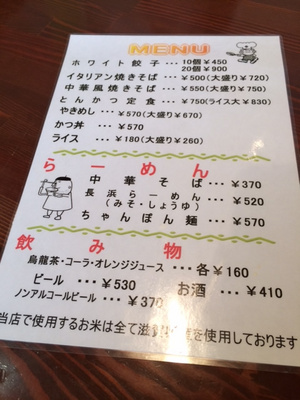 MENU
ホワイト餃子 ･･･ 10個 ¥450
20個 ¥900
イタリアン焼きそば ･･･ ¥500(大盛り¥720)
中華風焼きそば ･･･ ¥550(大盛り¥750)
とんかつ定食 ･･･ ¥750(ライス大¥830)
やきめし ･･･ ¥570(大盛り¥670)
かつ丼 ･･･ ¥570
ライス ･･･ ¥180(大盛り¥260)
らーめん
中華そば ･･･ ¥370
長浜らーめん ･･･ ¥520
(みそ・しょうゆ)
ちゃんぽん麺 ･･･ ¥570
飲み物
烏龍茶・コーラ・オレンジジュース ･･･ 各¥160
ビール ･･･ ¥530 お酒 ･･･ ¥410
ノンアルコールビール ･･･ ¥370
当店で使用するお米は全て滋賀を使用しております